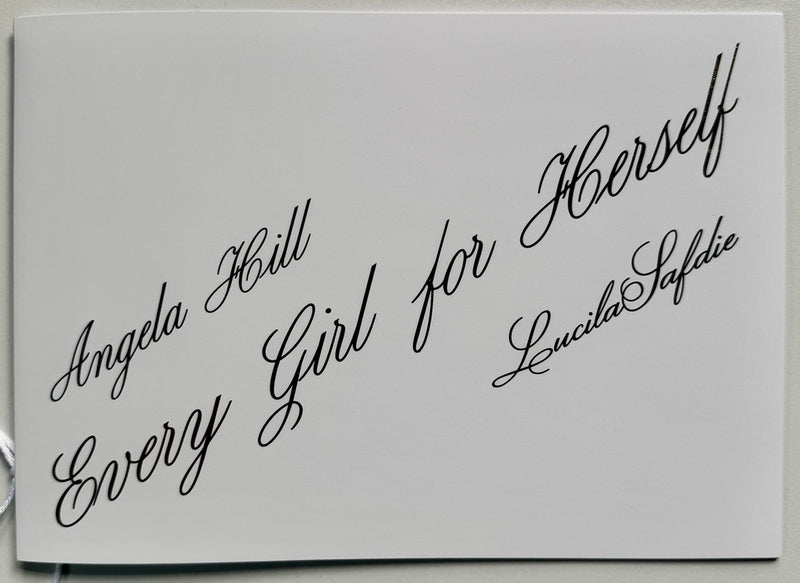 Angela Hill
Every Girl for Herself
LucilaSafdie